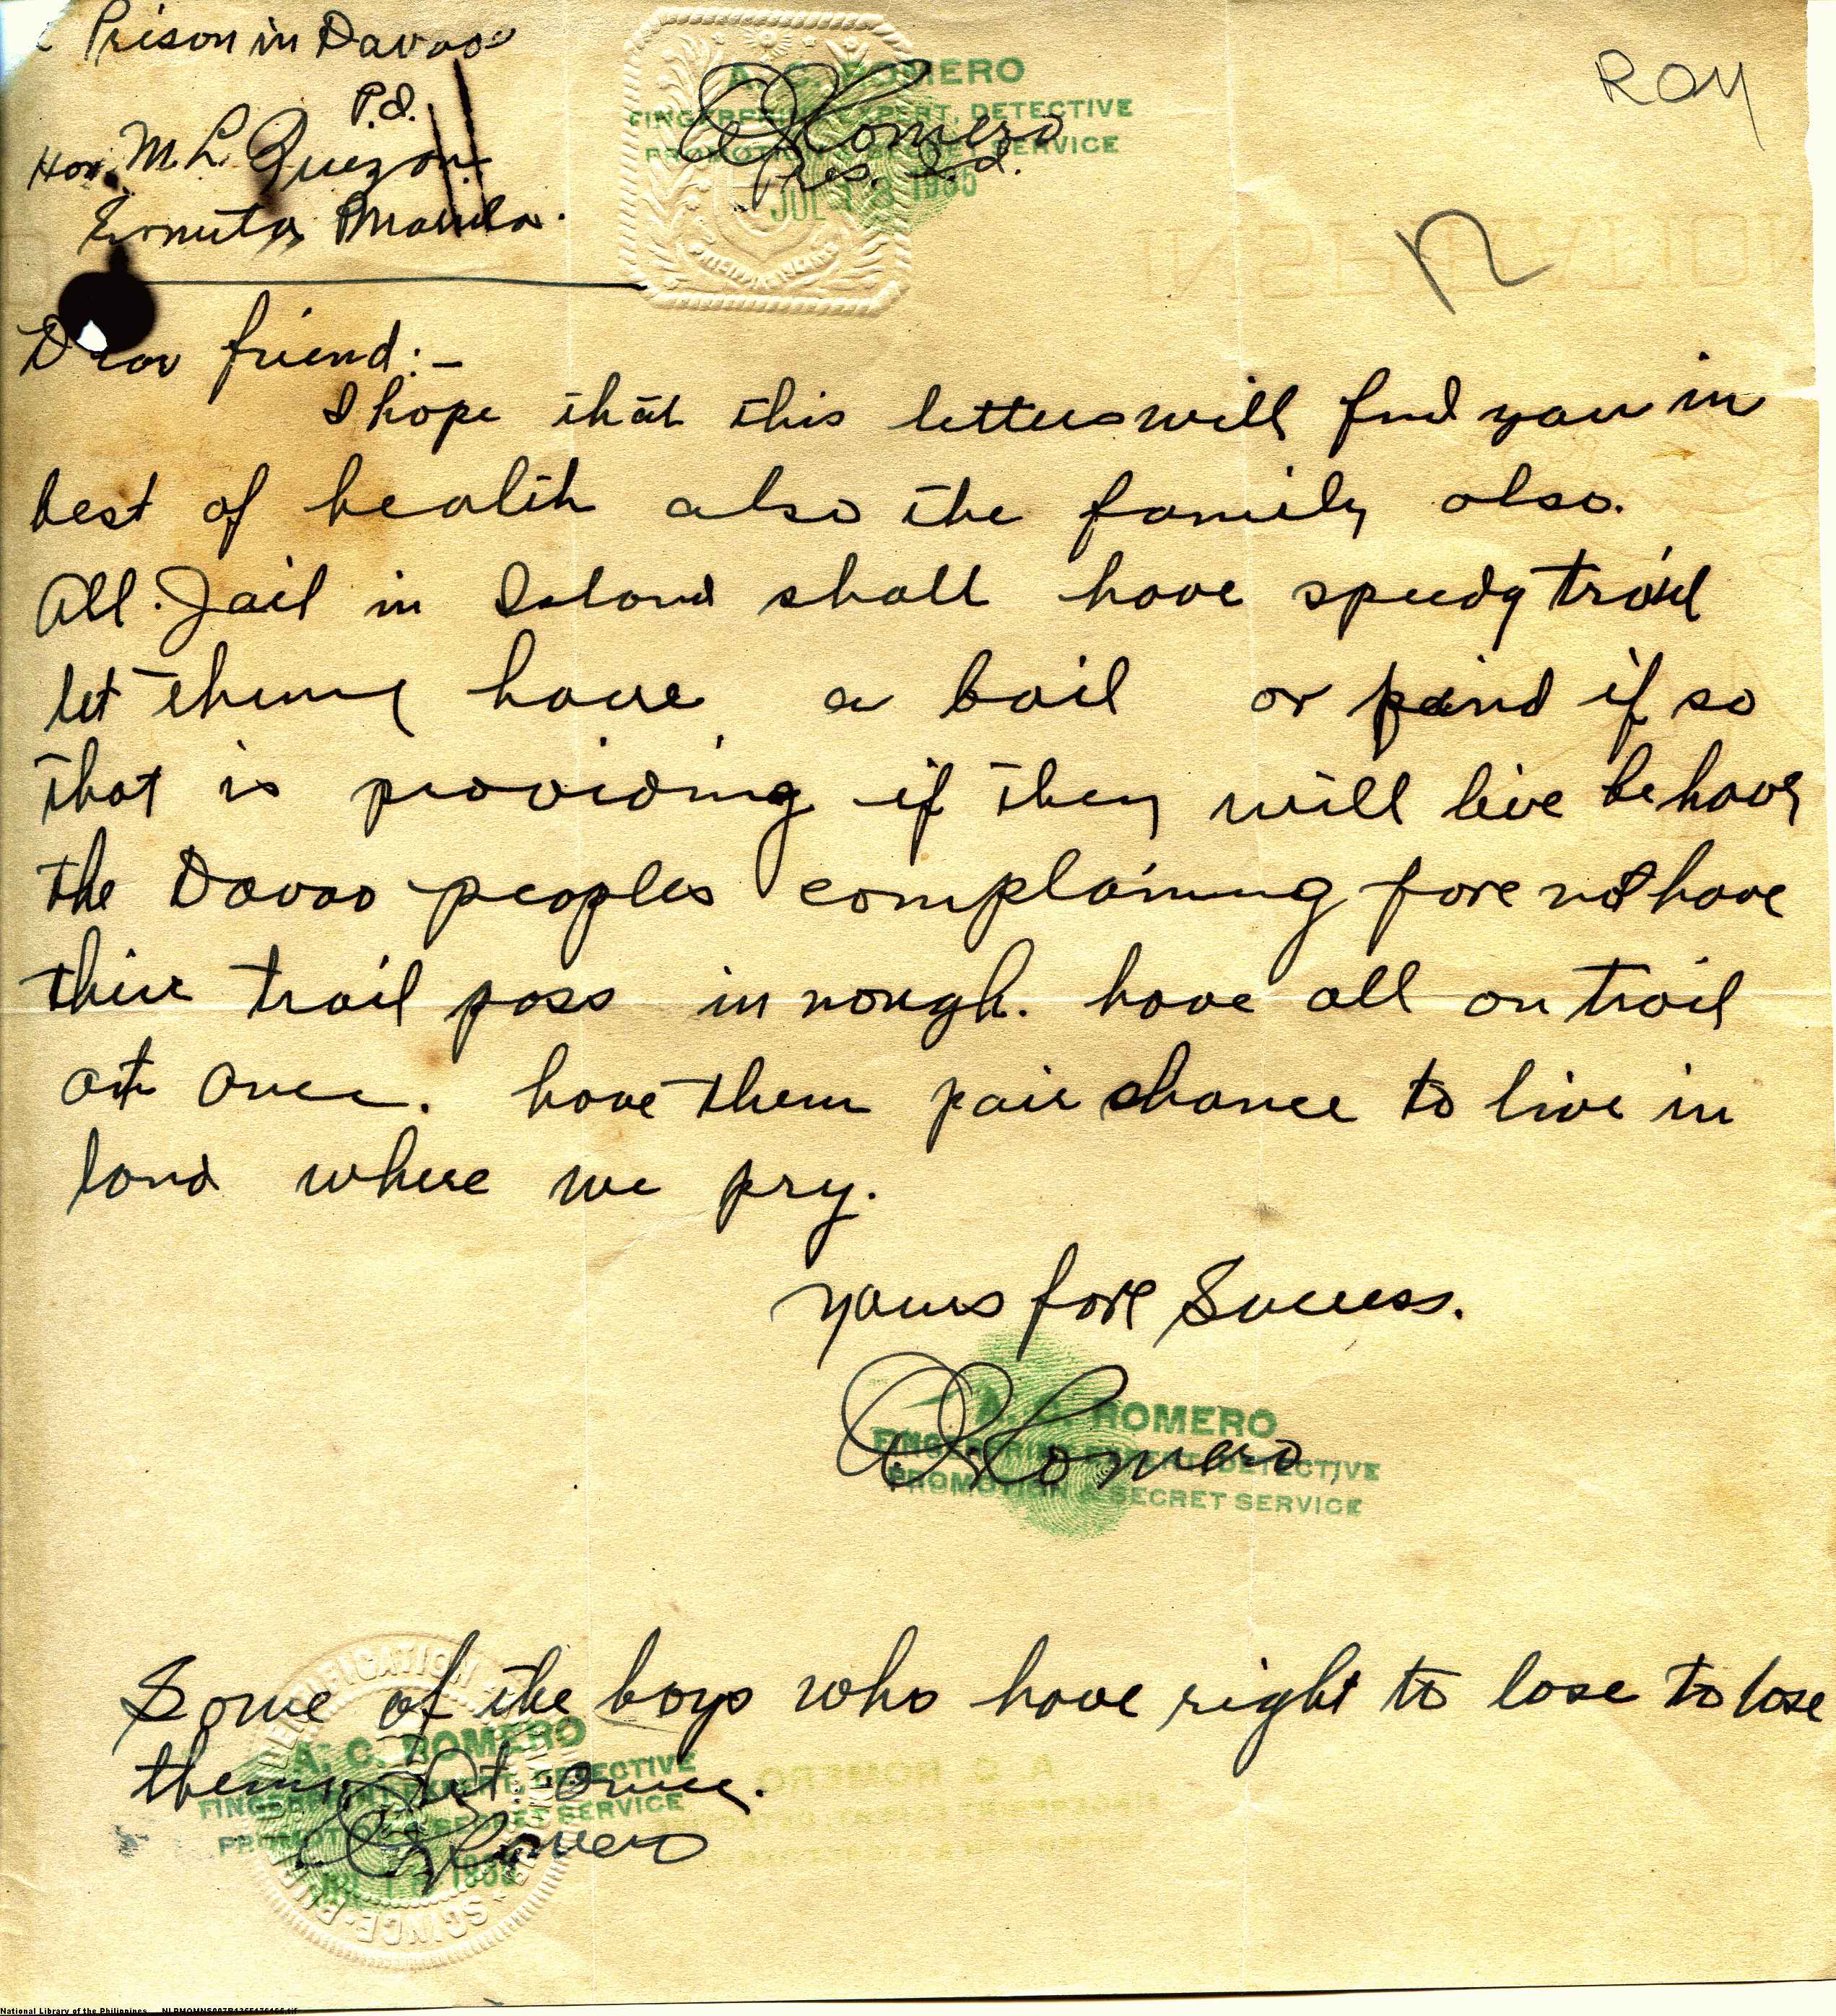 Prison in Davao
P.I.
Hon. M. L. Quezon
Ermita, Manila.
A. C. ROMERO
FINGERPRINT EXPERT, DETECTIVE
PROMOTION & SECRET SERVICE
ACRomero
Pres. S.d.
JUL 13 1935
ROY
Dear friend:-
I hope that this letters will find you in
best of health also the family also.
All. Jail in Island shall have speedy trail
let them have a bail or paind if so
that is providing if they will live behave
the Davao peoples complaining fore not have
thire trail pass in nough. have all on trail
at once. have them pair chance to live in
land where we pry.
Yours fore Success.
A. C. ROMERO
FINGERPRINT EXPERT, DETECTIVE
PROMOTION & SECRET SERVICE
ACRomero
Some of the boys who have right to lose to lose
them at once.
A. C. ROMERO
FINGERPRINT EXPERT, DETECTIVE
PROMOTION & SECRET SERVICE
ACRomero
National Library of the Philippines